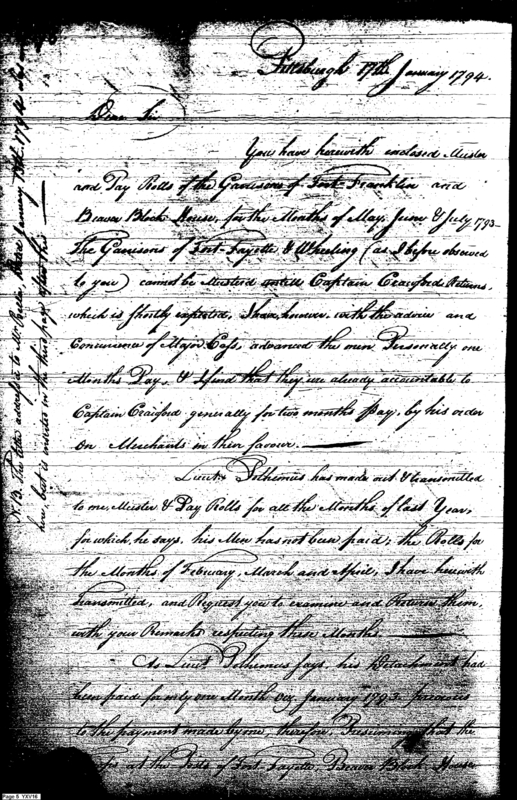 Pittsburgh 17th January 1794.
Dear Sir
You have herewith enclosed Muster
and Pay Rolls of the Garrisons of Fort-Franklin and
Beaver Block House, for the Months of May, June & July 1793–
The Garrisons of Fort-Fayette & Wheeling (as I before observed
to you) cannot be Mustered untill Captain Craigford Returns,
which is shortly expected, I have, however, with the advice and
Concurrence of Major Cass, advanced the men Personally one
Months Pay, & I find that they are already accountable to
Captain Craigford generally for two months Pay, by his order
on Merchants in their favour.
Lieut. Polhemus has made out & transmitted
to me, Muster & Pay Rolls for all the Months of last Year,
for which, he says, his Men has not been paid; the Rolls for
the Months of February, March and April, I have herewith
Transmitted, and Request you to examine and Return them,
with your Remarks respecting these Months.
As Lieut Polhemus says, his Detachment had
been paid for only one Month Viz January 1793. previous
to the payment made by me, therefore, Presuming that the
at the Posts of Fort Fayette Beaver Block House
N.B. The letter address'd to Mr.
here, but is inserted in the third page after this
Page 5 YXV16